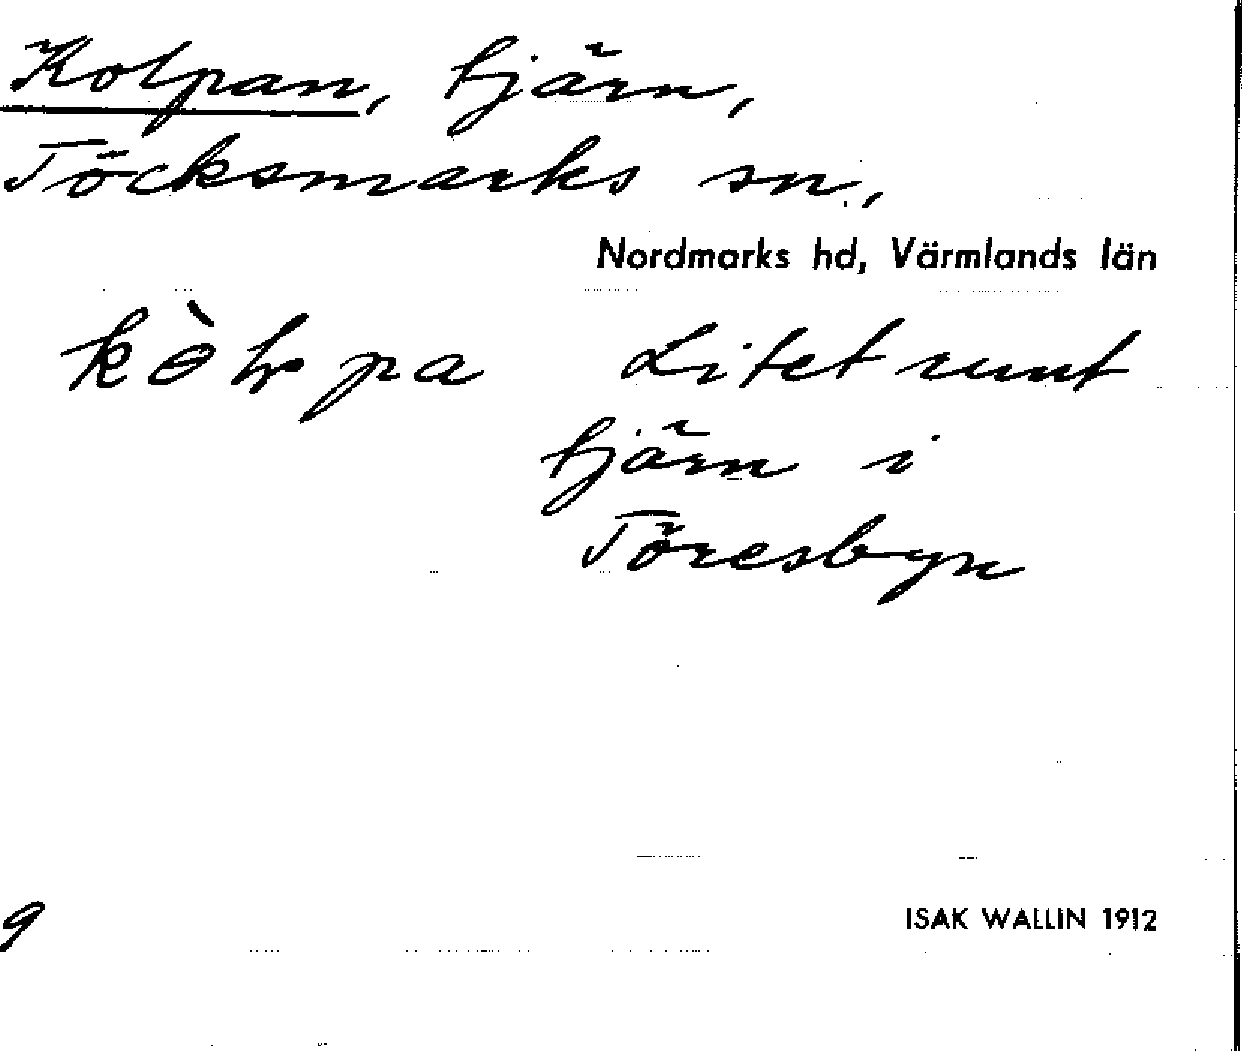 Kolpan, tjärn,
Töcksmarks sn.,
Nordmarks hd, Värmlands län
Litet runt
tjärn i
Töresbyn
9
ISAK WALLIN 1912